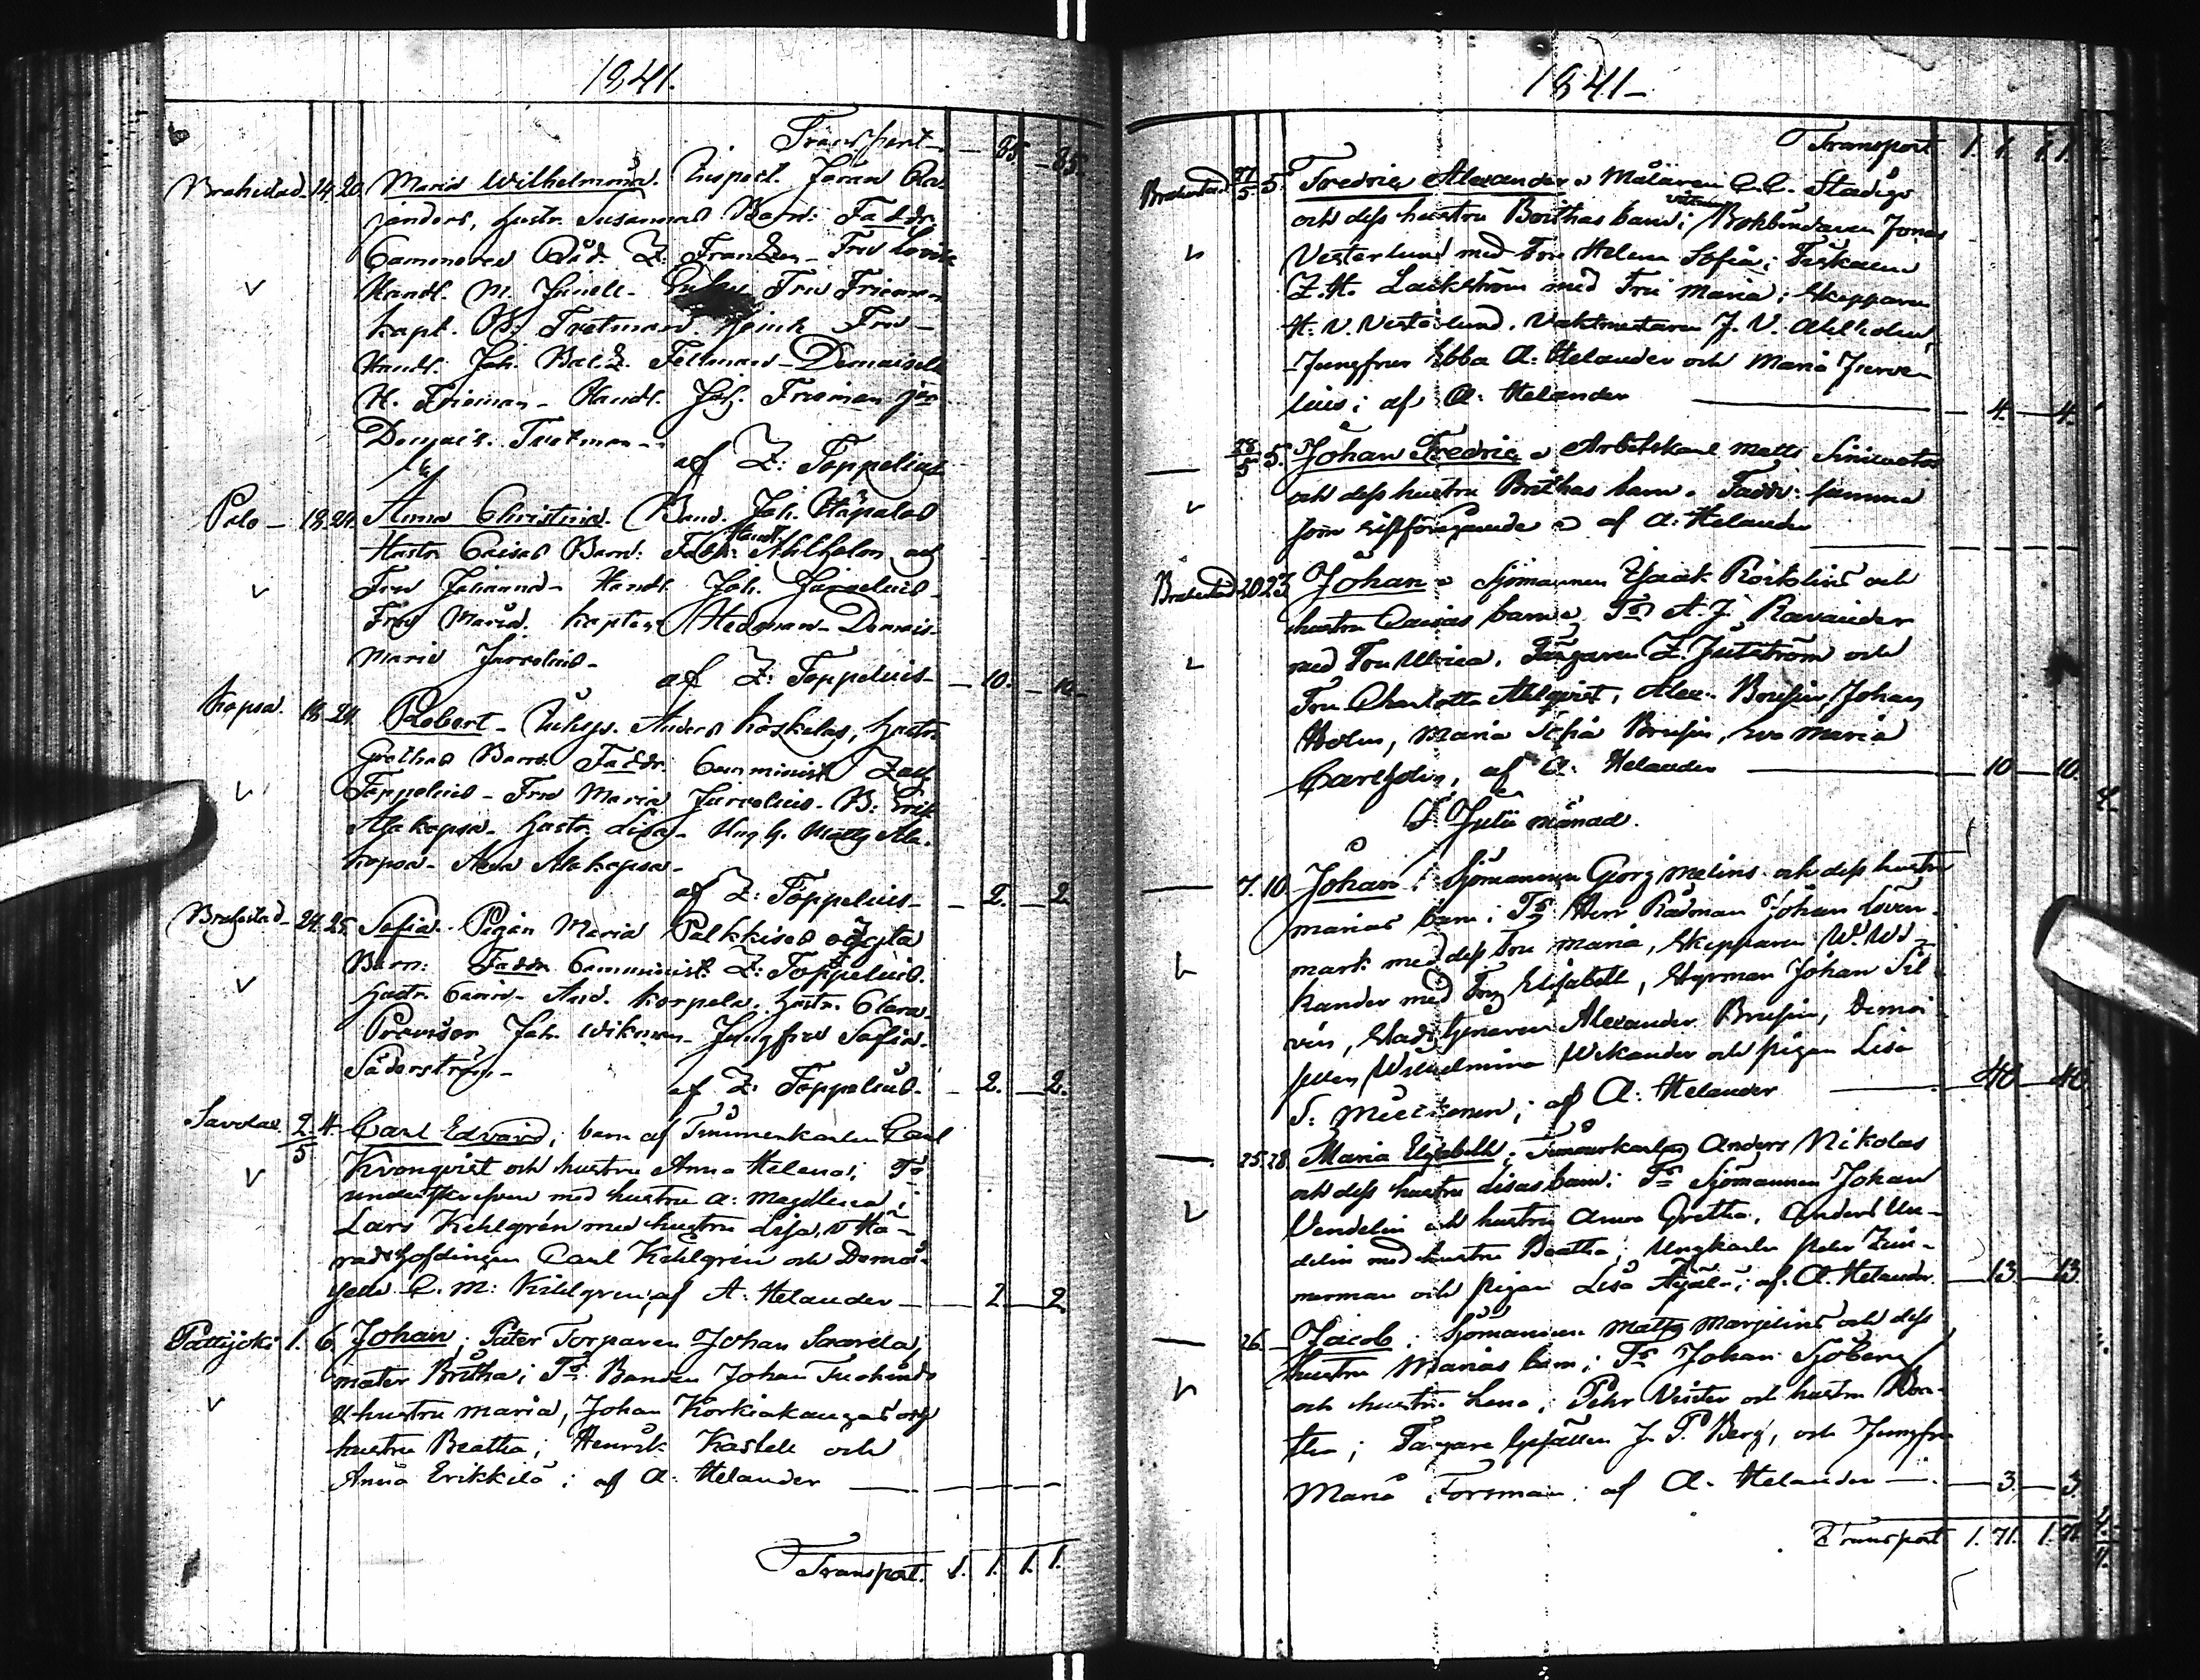 1841.
Transport - 85 - 85.
Brahestad. 14. 20. Maria Wilhelmina. Inspect. Göran
janders, hustr. Susannas Barn: Faddr.
Cammerer Råd. Z. Franzén - Fru Lovisa
Handl. M. Junell - Fru Frieman
Kapt. Fru -
Handl. Joh. Balz. Fellman - Demaisell
H. Frieman - Handl. Joh. Frieman jor
Demais.
af Z: Toppelius
Palo - 18. 24. Anna Christina. Bond. Joh.
Hustr. Caisas Barn: Faddr: Handl. Ahlholm och
Fru Johanna - Handl. Joh. Jurvelius -
Fru Maria. Kapten Hedman - Demais.
Maria Jurvelius -
af Z: Toppelius - - 10. - 10 -
Kopsa. 18. 24. Robert - Inhys. Anders Koskelas, hustr.
Grethas Barn. Faddr. Comminist Zach.
Toppelius - Fru Maria Jurvelius - B. Erik
Alakopsa - hustr. Lisa - Ung k. Matts Ala-
kopsa - Alakopsa -
af Z: Toppelius - - 2. - 2.
Brahestad - 24. 25. Sofia - Pigan Maria Palkkisas oägta
Barn: Faddr. Comminist. Z: Toppelius.
hustr. And. Korpela. hustr. Clara -
Provisor Joh. Wikman - Jungfru Sofia -
Söderström -
af Z: Toppelius. - 2. - 2.
Savolax 2/5. 4. Carl Edvard; barn af Timmerkarlen Carl
Kronqvist och hustru Anna Helena; Fr
underskrifven med hustru A: Magdlena;
Lars Kihlgrén med hustru Lisa, v Hä-
radshöfdingen Carl Kihlgrén och Demoi-
selle C. M: Kihlgren; af A. Helander - - 2. - 2.
Pattijoki 1. 6. Johan; Pater Torparen Johan Saarela,
mater Britha; Fr Bonden Johan
& hustru Maria, Johan Korkiakangas och
hustru Beatha; Henrik Kastell och
Anna Erikkilä; af A. Helander
Transport. 1. 1. 1. 1.
1841 -
Transport 1. 1. 1. 1.
Brahestad 27/5 5. Fredric Alexander; Målaren C. C. Stadigs
och dess hustru Brithas barn; vittnen Bokbindaren Jonas
Vesterlund med Fru Helena Sofia; Fiskalen
Z. H. Lackström med Fru Maria; Skepparen
H. V. Vesterlund. Vaktmästaren J. V. Ahlholm,
Jungfrur Ebba A: Helander och Maria Jurve-
lius; af A: Helander - 4. - 4.
— 28/5 5. Johan Fredric; Arbetskarl Matts
och dess hustru Brithas barn. Faddr. samma
som af A: Helander
Brahestad 20 23. Johan; Sjömannen Isaak och
hustru Caisas barn; Fr A. J. Ravander
med Fru Ulrica, Färgaren Z. Jutström och
Fru Charlotta Ahlqvist, Alex. Brusin, Johan
Holm, Maria Sofia Brusin, Eva Maria
Carlholm, af A: Helander - 10 - 10.
I Julii månad.
— 7. 10. Johan; Sjömannen Georg Melins och dess hustru
Marias barn; Fr Herr Rådman Johan Löven-
mark med dess Fru Maria, Skepparen W. Wi-
kander med Fru Elisabeth, Styrman Johan Sil-
vén, Alexander Brusin, Demoi-
sellen Wilhelmina Wikander och pigan Lisa
S: ; af A: Helander - 40 - 40.
— 25. 28. Maria Elisabeth; Timmerkarlen Anders Nikolas
och dess hustru Lisas barn: Fr Sjömannen Johan
Vendelin och hustru Anna Gretha, Anders Un-
delin med hustru Beatha; Ungkarlen Peter Zim-
merman och pigan Lisa ; af A. Helander - 13. - 13.
— 26. - Jacob; Sjömannen Matts Marjelins och dess
hustru Marias barn; Fr Johan Sjöberg
och hustru Lena; Pehr Vester och hustru
; Färgare Gesällen J. P. Berg, och Jungfru
Maria Forsman: af A. Helander - 3. - 3.
Transport 1. 71. 1. 71.